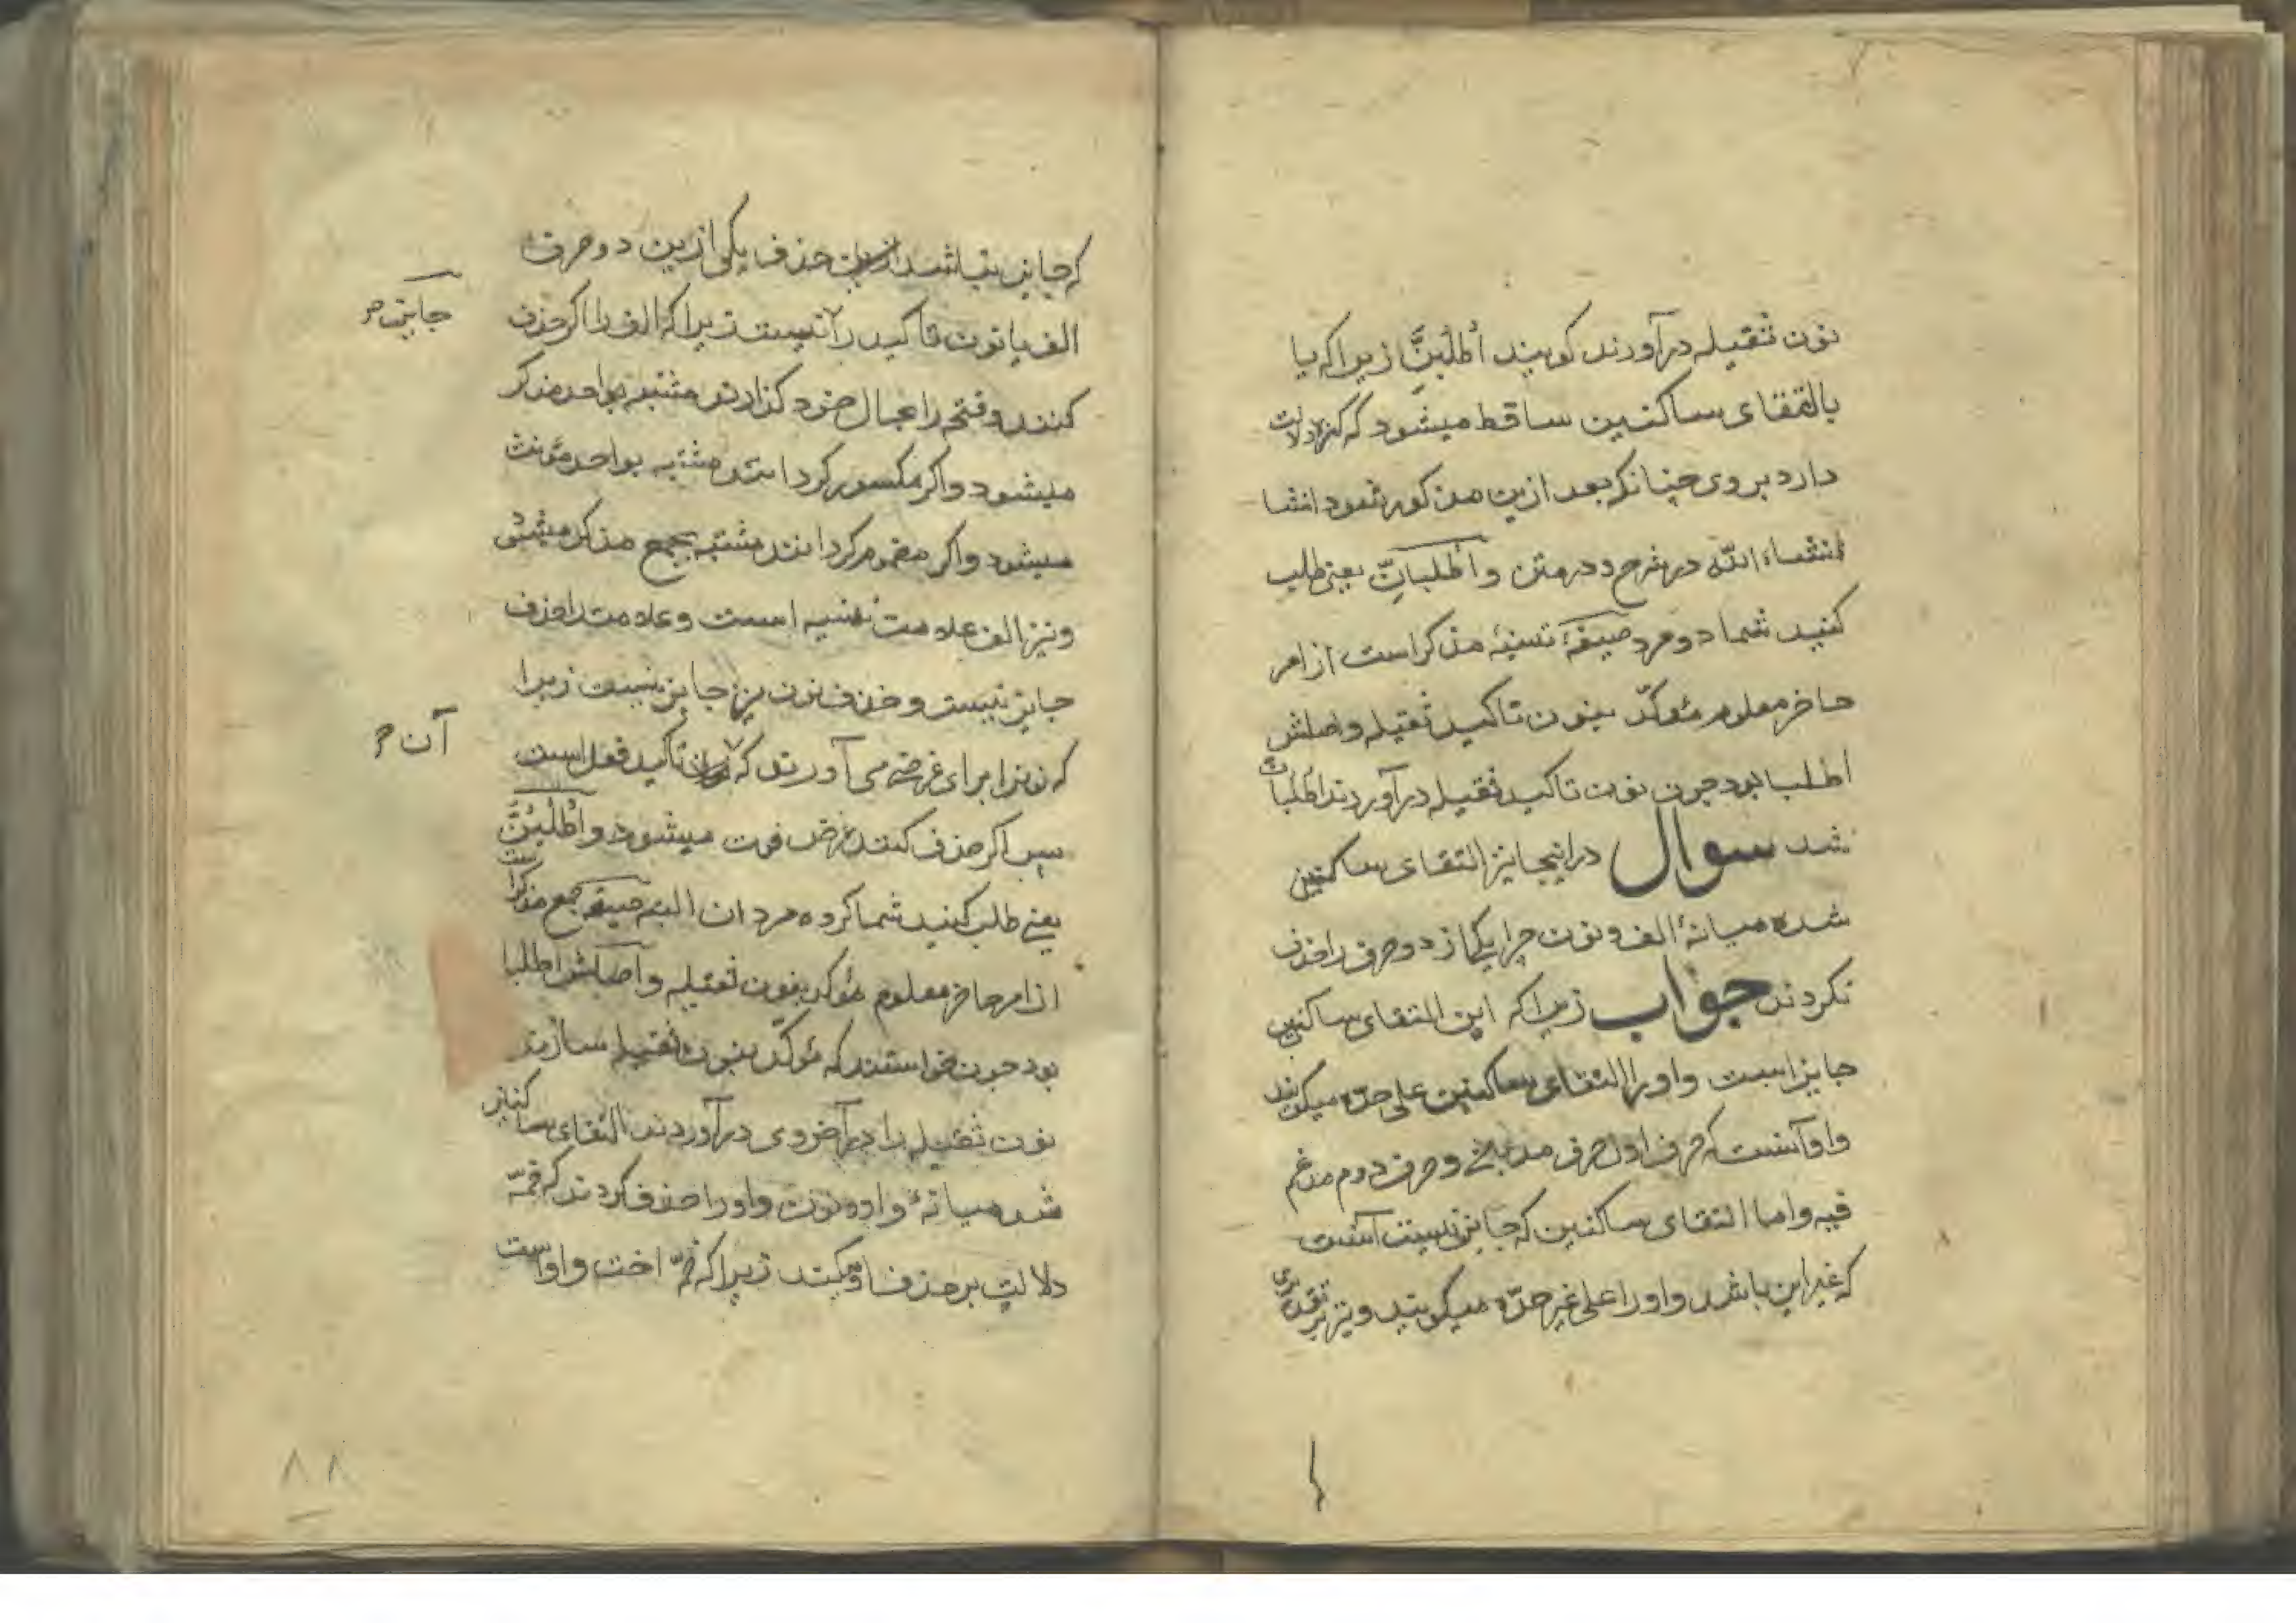 نون ثقیله درآورند کویند اُطْلُبَنَّ زیرا که یا
بالتقای ساکنین ساقط میشود که کسره دلالت
دارد بروی چنانکه بعد ازین مذکور شود انشا
انشاء الله در شرح و در متن واطلبانّ یعنی طلب
کنید شما دو مرد صیغهٔ تسنیهٔ مذکر است از امر
حاضر معلوم مئوکّد بنون تاکید ثقیله واصلش
اطلبا بود جون نون تاکید ثقیله درآوردند اطلبانّ
شد سوال در اینجا نیز التقای ساکنین
شده میانهٔ الف ونون چرا یکی از دو حرف را حذف
نکردند جواب زیرا که این التقای ساکنین
جایز است واورا التقای ساکنین علی حدّه میکویند
واو آنست که حرف اول حرف مد وحرف دوم مدغم
فیه واما التقای ساکنین که جایز نیست آنست
که غیر این باشد واورا علی غیر حدّه میکویند ونیز بر تقدیری
که جایز نباشد حذف یکی ازین دو حرف
الف یا نون تاکید را نیست زیرا که الف را اکر حذف
جایز
کنند وفتحه را بحال خود کذارند مشتبه بواحد مذکر
میشود واکر مکسور کردانند مشتبه بواحد مئونث
میشود واکر مضموم کردانند مشتبه بجمع مذکر میشود
ونیز الف علامت تثنیه است وعلامت را حذف
جایز نیست وحذف نون نیز جایز نیست زیرا
که نونرا برای غرضی می آورند که تاکید فعل است
آن
پس اکر حذف کنند غرض فوت میشود واُطْلُبُنَّ
یعنی طلب کنید شما کروه مردان البته صیغه جمع مذکر است
از امر حاضر معلوم مئوکد بنون ثقیله واصلش اطلبوا
بود جون خواستند که مئوکّد بنون ثقیله سازند
نون ثقیله را در آخر وی درآوردند التقای ساکنین
شد میانهٔ واو ونون واو را حذف کردند که ضمّه
دلالت بر حذف واو میکند زیرا که ضمّه اخت واو است
۸۸